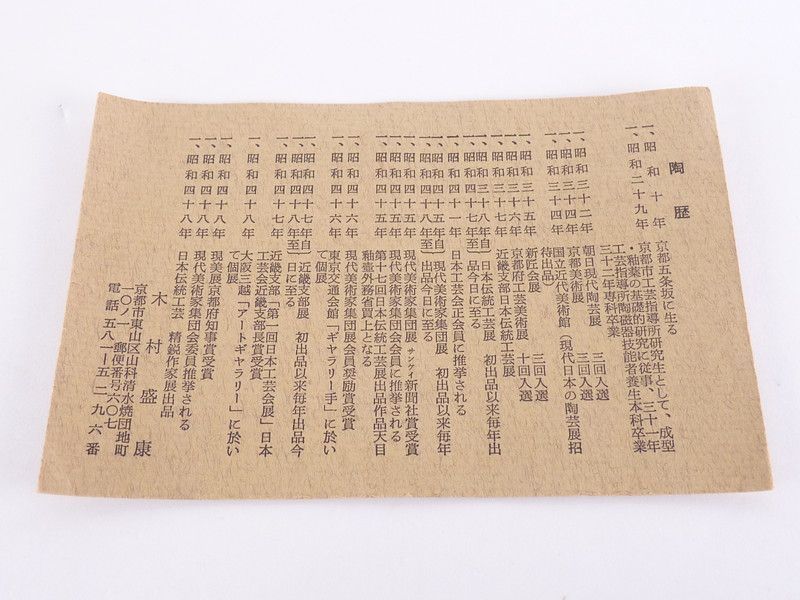 陶歴
一、昭和十年 京都五条坂に生る
一、昭和二十九年 京都市工芸指導所研究生として、成型
・釉薬の基礎的研究に従事、三十一年
工芸指導所陶磁器技能者養生本科卒業
三十二年専科卒業
一、昭和三十二年 朝日現代陶芸展 三回入選
一、昭和三十四年 京都美術展 三回入選
一、昭和三十四年 国立近代美術館(現代日本の陶芸展招
待出品)
一、昭和三十五年 新匠会展 三回入選
一、昭和三十六年 京都府工芸美術展 十回入選
一、昭和三十七年 近畿支部日本伝統工芸展
一、昭和三十八年自至 日本伝統工芸展 初出品以来毎年出
品今日に至る
一、昭和四十一年 日本工芸会正会員に推挙される
一、昭和四十五年自 現代美術家集団展 初出品以来毎年
一、昭和四十八年至 出品今日に至る
一、昭和四十五年 現代美術家集団展 サンケイ新聞社賞受賞
一、昭和四十五年 現代美術家集団会会員に推挙される
一、昭和四十五年 第十七回日本伝統工芸展出品作品天目
釉壷外務省買上となる
一、昭和四十六年 現代美術家集団展会員奨励賞受賞
一、昭和四十六年 東京交通会館「ギャラリー手」に於い
て個展
一、昭和四十七年自 近畿支部展 初出品以来毎年出品今
一、昭和四十八年至 日に至る
一、昭和四十八年 近畿支部「第一回日本工芸会展」日本
工芸会近畿支部長賞受賞
一、昭和四十八年 大阪三越「アートギャラリー」に於い
て個展
一、昭和四十八年 現美展京都府知事賞受賞
一、昭和四十八年 現代美術家集団会委員推挙される
一、昭和四十八年 日本伝統工芸 精鋭作家展出品
木村盛康
京都市東山区山科清水焼団地町
一〇ノ一 郵便番号六〇七
電話 五八一ー五二九六番